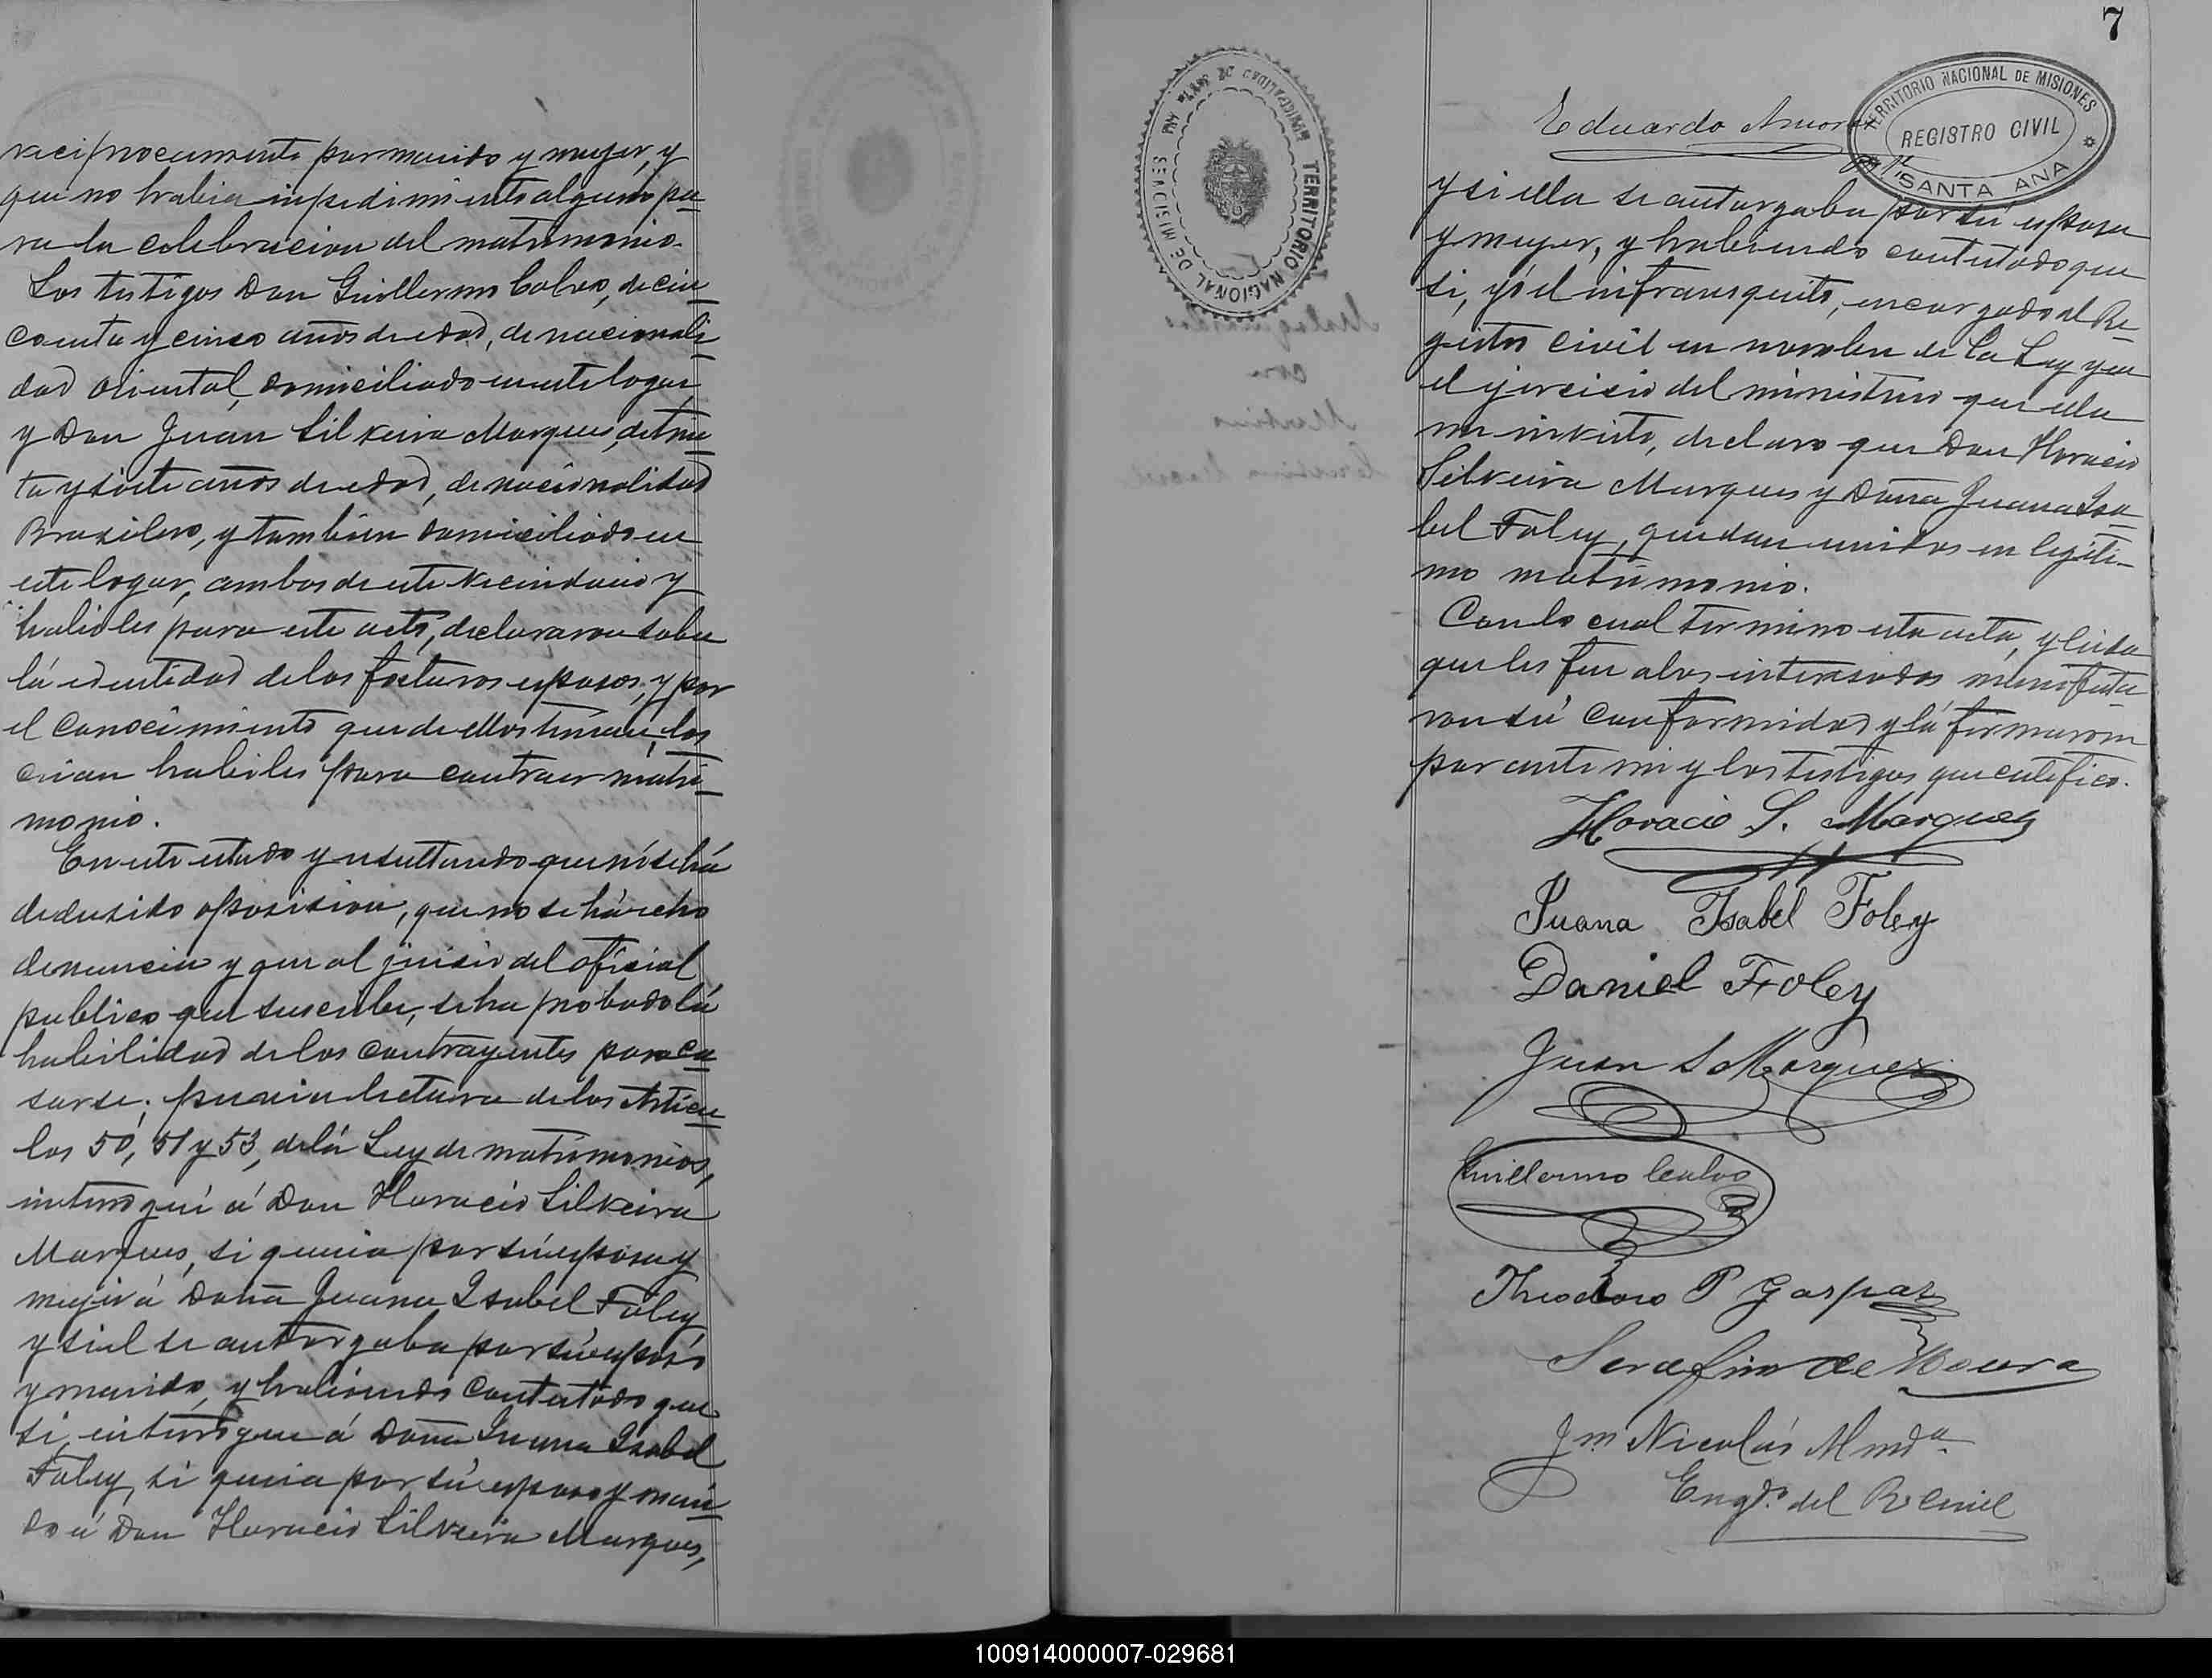 reciprocamente por marido y muger, y
que no habia inpedimiento alguno pa
ra la celebracion del matrimonio.
Los testigos Don Guillermo Calvo, de cin
cuenta y cinco años de edad, de nacionali
dad oriental, domiciliado en este logar,
y Don Juan Silveira Marques, de trein
ta y siete años de edad, de nacionalidad
Brasilero, y tambien domiciliado en
este logar, ambos de este vecindario y
habiles para este acto, declararon sober
lá identidad de los foturos esposos, y por
el conocimiento que de ellos tienen, los
crian habiles para contraer matri
monio.
En este estado y resultando que nó se há
dedusido oposision, que no se há echo
denuncia y que al juisio del oficial
publico que suscribe, se ha probado lá
habilidad de los contrayentes para ca
sarse; previa lectura de los Articu
los 50, 51 y 53, de lá Ley de matrimonios,
interogué á Don Horacio Silveira
Marques, si queria por sú esposa y
mujer á Doña Juana Isabel Foley
y si el se autorgaba por sú esposo
y marido, y habiendo contestado que
si, interogue á Doña Juana Isabel
Foley, si queria por sú esposo y mari
do á Don Horacio Silveira Marques,
7
TERRITORIO NACIONAL DE MISIONES
REGISTRO CIVIL
SANTA ANA
Eduardo
TERRITORIO NACIONAL DE MISIONES
y si ella se autorgaba por sú esposa
y muger, y habiendo contestado que
si, yó el infranqrito, encargado del Re
gistro Civil en nombre de la Ley y en
el ejercisio del ministerio que ella
me inviste, declaro que Don Horacio
Silveira Marques y Doña Juana Isa
bel Foley, quedan unidos en legiti-
mo matrimonio.
Con lo cual termino esta acta, y leida
que les fue a los interesados manifesta
ron sú conformidad y lá firmaron
por ante mi y los testigos que certifico.
Horacio S. Marques
Juana Isabel Foley
Daniel Foley
Juan S Marquez
Guillermo Calvo
Theodoro P Gaspar
Serafim de Moura
Jm Nicolás Mmdª
Engdº. del R Civil
100914000007-029681